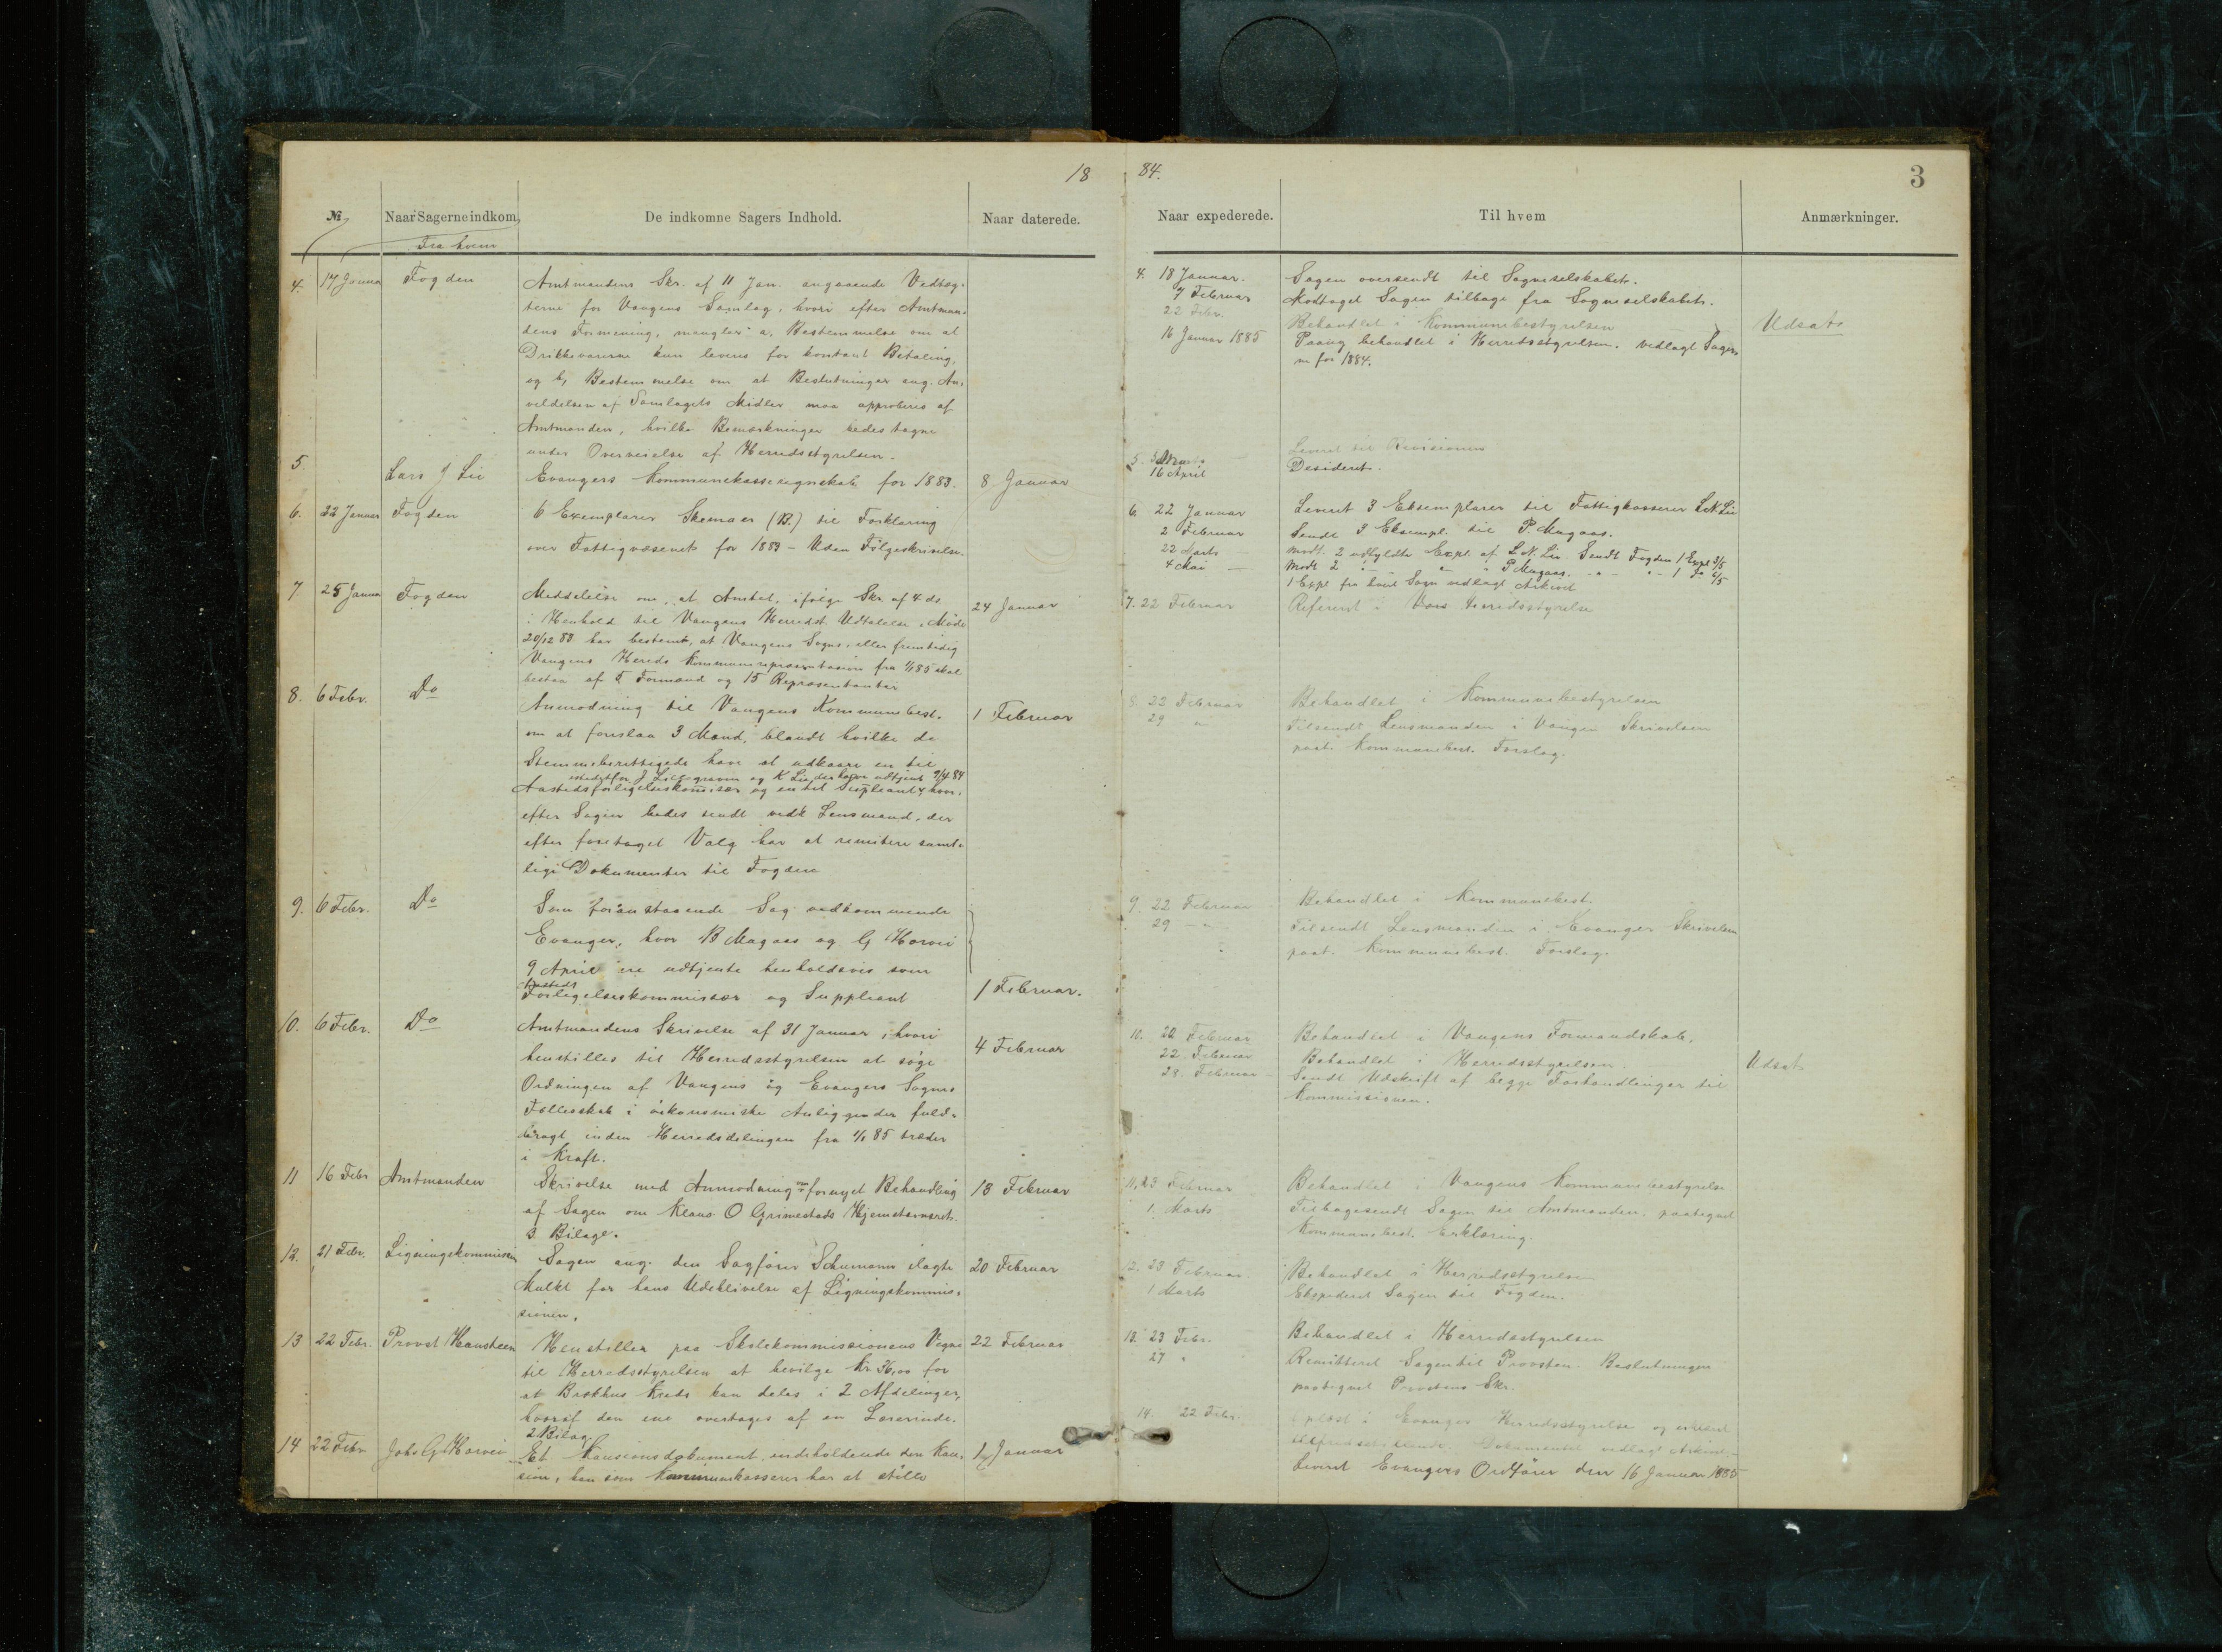 18 84. 3
№ Naar Sagerne indkom, De indkomne Sagers Indhold. Naar daterede.
Fra hvem
4. 17 Januar Fogden Amtmandens Skr. af 11 Jan. angaaende Vedtæg-
terne for Vangens Samlag, hvori efter Amtman-
dens Formening, mangler: a. Bestemmelse om at
Drikkevarerne kun leveres for kontant Betaling,
og b, Bestemmelse om at Beslutninger ang. An-
vendelsen af Samlagets Midler maa approberes af
Amtmanden, hvilke Bemærkninger bedes tagne
under Overveielse af Herredsstyrelsen.
5. Lars J Lie Evangers Kommunekasseregnskab for 1883. 8 Januar
6. 22 Januar Fogden 6 Exemplarer Skemaer (B.) til Forklaring
over Fattigvæsenet for 1883 - Uden Følgeskrivelse.
7 25 Januar Fogden Meddelelse om, at Amtet, ifølge Skr. af 4 ds. 24 Januar
i Henhold til Vangens Herredst. Udtalelse i Møde
20/12 83 har bestemt, at Vangens Sogns, eller fremtidig
Vangens Hereds Kommunerepræsentasion fra 1/1 85 skal
bestaa af 5 Formænd og 15 Repræsentanter
8. 6 Febr. Do Anmodning til Vangens Kommunebest. 1 Februar
om at foreslaa 3 Mænd, blandt hvilke de
Stemmeberettigede have at udkaare en til
istedetfor J Lillegraven og K Lie der have udtjent 9/4 84
Aastedsforligelseskommisær og en til Suppleant, hvor-
efter Sagen bedes sendt vedk Lensmand, der
efter foretaget Valg har at remitere samt-
lige Dokumenter til Fogden
9. 6 Febr. Do Som foranstaaende Sag vedkommende
Evanger, hvor B Mugaas og G Horvei
9 April ere udtjente henholdsvis som
Aasteds
Forligelseskommissær og Suppleant 1 Februar.
10. 6 Febr. Do Amtmandens Skrivelse af 31 Januar, hvori
henstilles til Herredsstyrelsen at søge 4 Februar
Ordningen af Vangens og Evangers Sognes
Fællesskab i økonomiske Anliggender fuld-
bragt inden Herredsdelingen fra 1/1 85 træder
i Kraft.
11 16 Febr Amtmanden Skrivelse med Anmodning om fornyet Behandling 13 Februar
af Sagen om Klaus O Grimestads Hjemstavnsret.
3 Bilage.
12. 21 Febr. Ligningskommisen Sagen ang. den Sagfører Schumann ilagte 20 Februar
Mulkt for hans Udeblivelse af Ligningskommis-
sionen.
13 22 Febr. Provst Hansteen Henstiller paa Skolekommissionens Vegne 22 Februar
til Herredsstyrelsen at bevilge Kr. 36,00 for
at Brækhus Kreds kan deles i 2 Afdelinger,
hvoraf den ene overtages af en Lærerinde.
2 Bilag
14 22 Febr Johs G Horvei Et Kausionsdokument, indeholdende den Kau- 1 Januar
sion, han som Kommunekasserer har at stille
Naar expederede. Til hvem Anmærkninger.
4. 18 Januar. Sagen oversendt til Sogneselskabet.
7 Februar Modtaget Sagen tilbage fra Sogneselskabet.
22 Febr. Behandlet i Kommunebestyrelsen Udsat
16 Januar 1885 Paany behandlet i Herredsstyrelsen. vedlagt Sagen
for 1884.
5. Leveret til Revisionen
16 April Desideret.
6. 22 Januar Leveret 3 Eksemplarer til Fattigkasserer L N Lie
2 Februar Sendt 3 Eksempl. til P. Mugaas.
22 Marts — Modt. 2 udfyldte Expl. af L. N. Lie. Sendt Fogden 1 Expl 3/5
4 Mai — Modt 2 " " " P Mugaas. - " - " - 1 Do 6/5
1 Expl fra hvert Sogn vedlagt Arkivet
7. 22 Februar Refereret i Vors Herredsstyrelse
8. 22 Februar Behandlet i Kommunebestyrelsen
29 " Tilsendt Lensmanden i Vangen Skrivelsen
paat. Kommunebest. Forslag.
9. 22 Februar Behandlet i Kommunebest.
29 - " - Tilsendt Lensmanden i Evanger Skrivelsen
paat. Kommunebest. Forslag.
10. 22 Februar Behandlet i Vangens Formandskab.
22 Februar Behandlet i Herredsstyrelsen. Udsat
28. Februar Sendt Udskrift af begge Forhandlinger til
Kommissionen.
11. 23 Februar Behandlet i Vangens Kommunebestyrelse
1. Marts Tilbagesendt Sagen til Amtmanden, paategnet
Kommunebest. Erklæring.
12. 23 Februar Behandlet i Herredsstyrelsen
1 Marts Ekspederet Sagen til Fogden.
13. 23 Febr. Behandlet i Herredsstyrelsen
27 " Remitteret Sagen til Provsten. Beslutningen
paategnet Provstens Skr.
14. 22 Febr. Oplæst i Evanger Herredsstyrelse og erklæret
tilfredsstillende. Dokumentet vedlagt Arkivet-
Leveret Evangers Ordfører den 16 Januar 1885